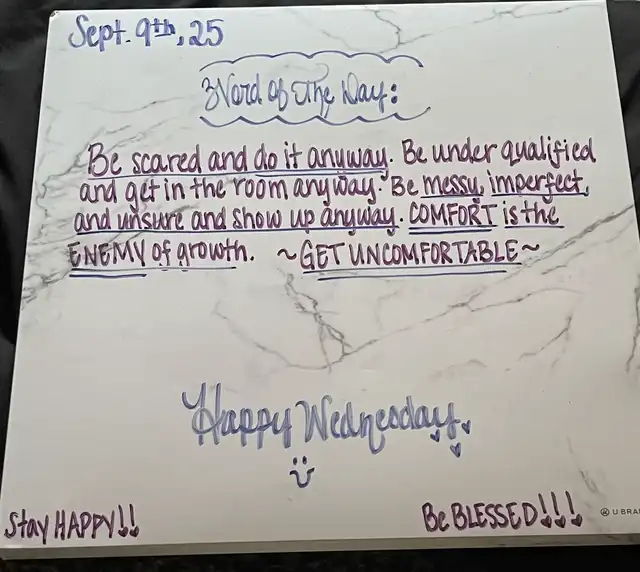 Sept. 9th, 25
Word of The Day:
Be scared and do it anyway. Be under qualified
and get in the room anyway. Be messy, imperfect,
and unsure and show up anyway. COMFORT is the
ENEMY of growth. ~GET UNCOMFORTABLE~
Happy Wednesday
Stay HAPPY!!
Be BLESSED!!!
U BRA